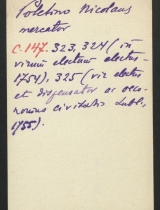 Poletino Nicolaus
mercator
C. 147. 323, 324 (in
virum electum electus
1754), 325 (vir electus
et dispensator et oeco
nomus civitatis Lubl.
1755).